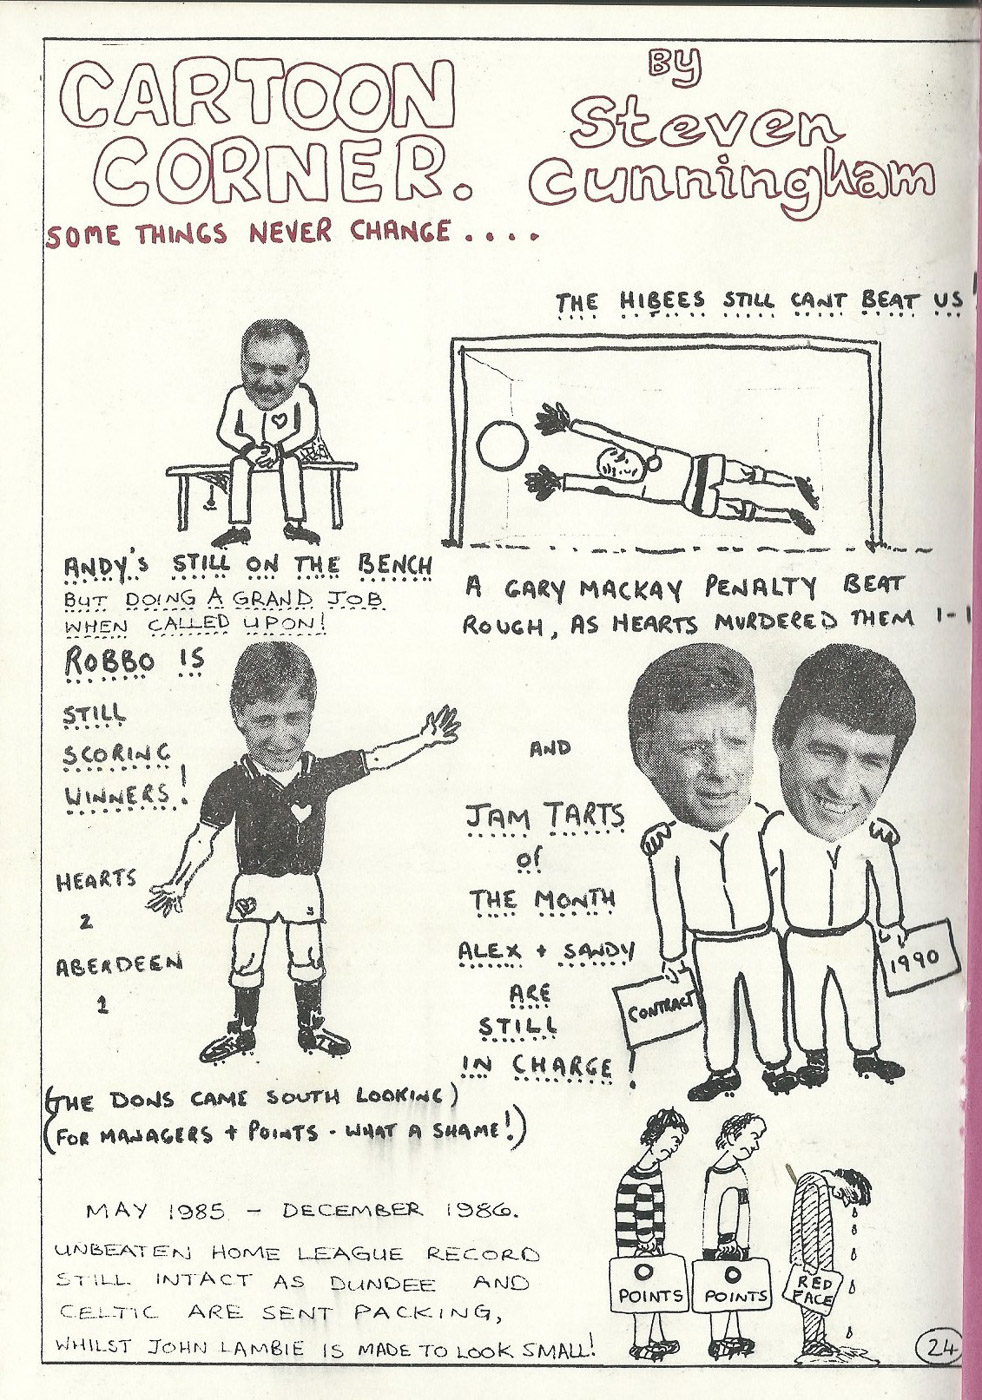 CARTOON
CORNER.
BY
Steven
Cunningham
SOME THINGS NEVER CHANGE....
THE HIBEES STILL CANT BEAT US!
ANDY'S STILL ON THE BENCH
BUT DOING A GRAND JOB
WHEN CALLED UPON!
A GARY MACKAY PENALTY BEAT
ROUGH, AS HEARTS MURDERED THEM 1-1
ROBBO IS
STILL
SCORING
WINNERS!
HEARTS
2
ABERDEEN
1
AND
JAM TARTS
of
THE MONTH
ALEX + SANDY
ARE
STILL
IN CHARGE!
CONTRACT
1990
(THE DONS CAME SOUTH LOOKING)
(FOR MANAGERS + POINTS - WHAT A SHAME!)
MAY 1985 - DECEMBER 1986.
UNBEATEN HOME LEAGUE RECORD
STILL INTACT AS DUNDEE AND
CELTIC ARE SENT PACKING,
WHILST JOHN LAMBIE IS MADE TO LOOK SMALL!
0
POINTS
0
POINTS
RED
FACE
24